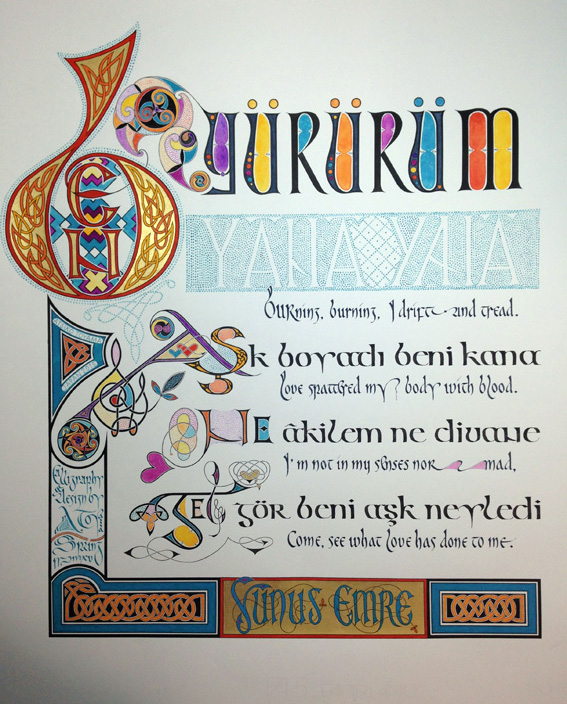 BEN YÜRÜRÜM
YANA YANA
Burning, burning, I drift and tread.
AŞk boyadı beni kana
Love spattered my body with blood.
NE âkilem ne divane
I'm not in my senses nor mad.
GEL gör beni aşk neyledi
Come, see what love has done to me.
Calligraphy
Design by
Spring
YUNUS EMRE